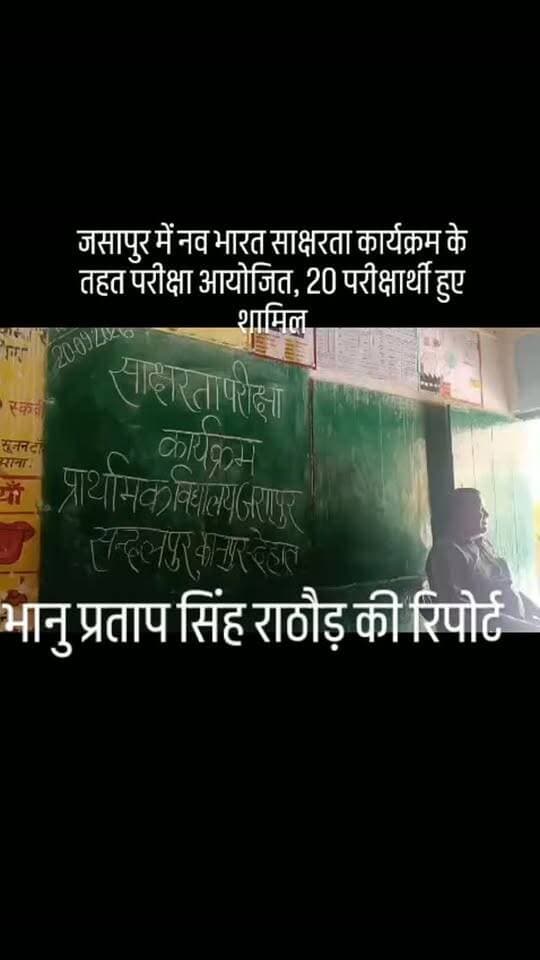 जसापुर में नव भारत साक्षरता कार्यक्रम के
तहत परीक्षा आयोजित, 20 परीक्षार्थी हुए
शामिल
साक्षरता परीक्षा
कार्यक्रम
प्राथमिक विद्यालय जसापुर
सन्दलपुर, कानपुर देहात
भानु प्रताप सिंह राठौड़ की रिपोर्ट